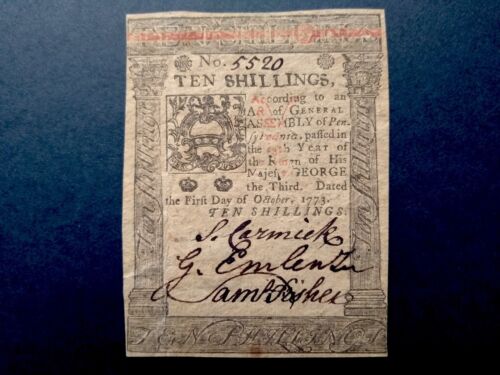 TEN SHILLINGS
No. 5520
TEN SHILLINGS,
According to an
Act of GENERAL
ASSEMBLY of Pen-
sylvania, passed in
the Year of
the Reign of His
Majesty GEORGE
the Third. Dated
the First Day of October, 1773.
TEN SHILLINGS.
S. Carmick
G. Emlen Jr
Saml Fisher
Ten Shillings
Ten Shillings